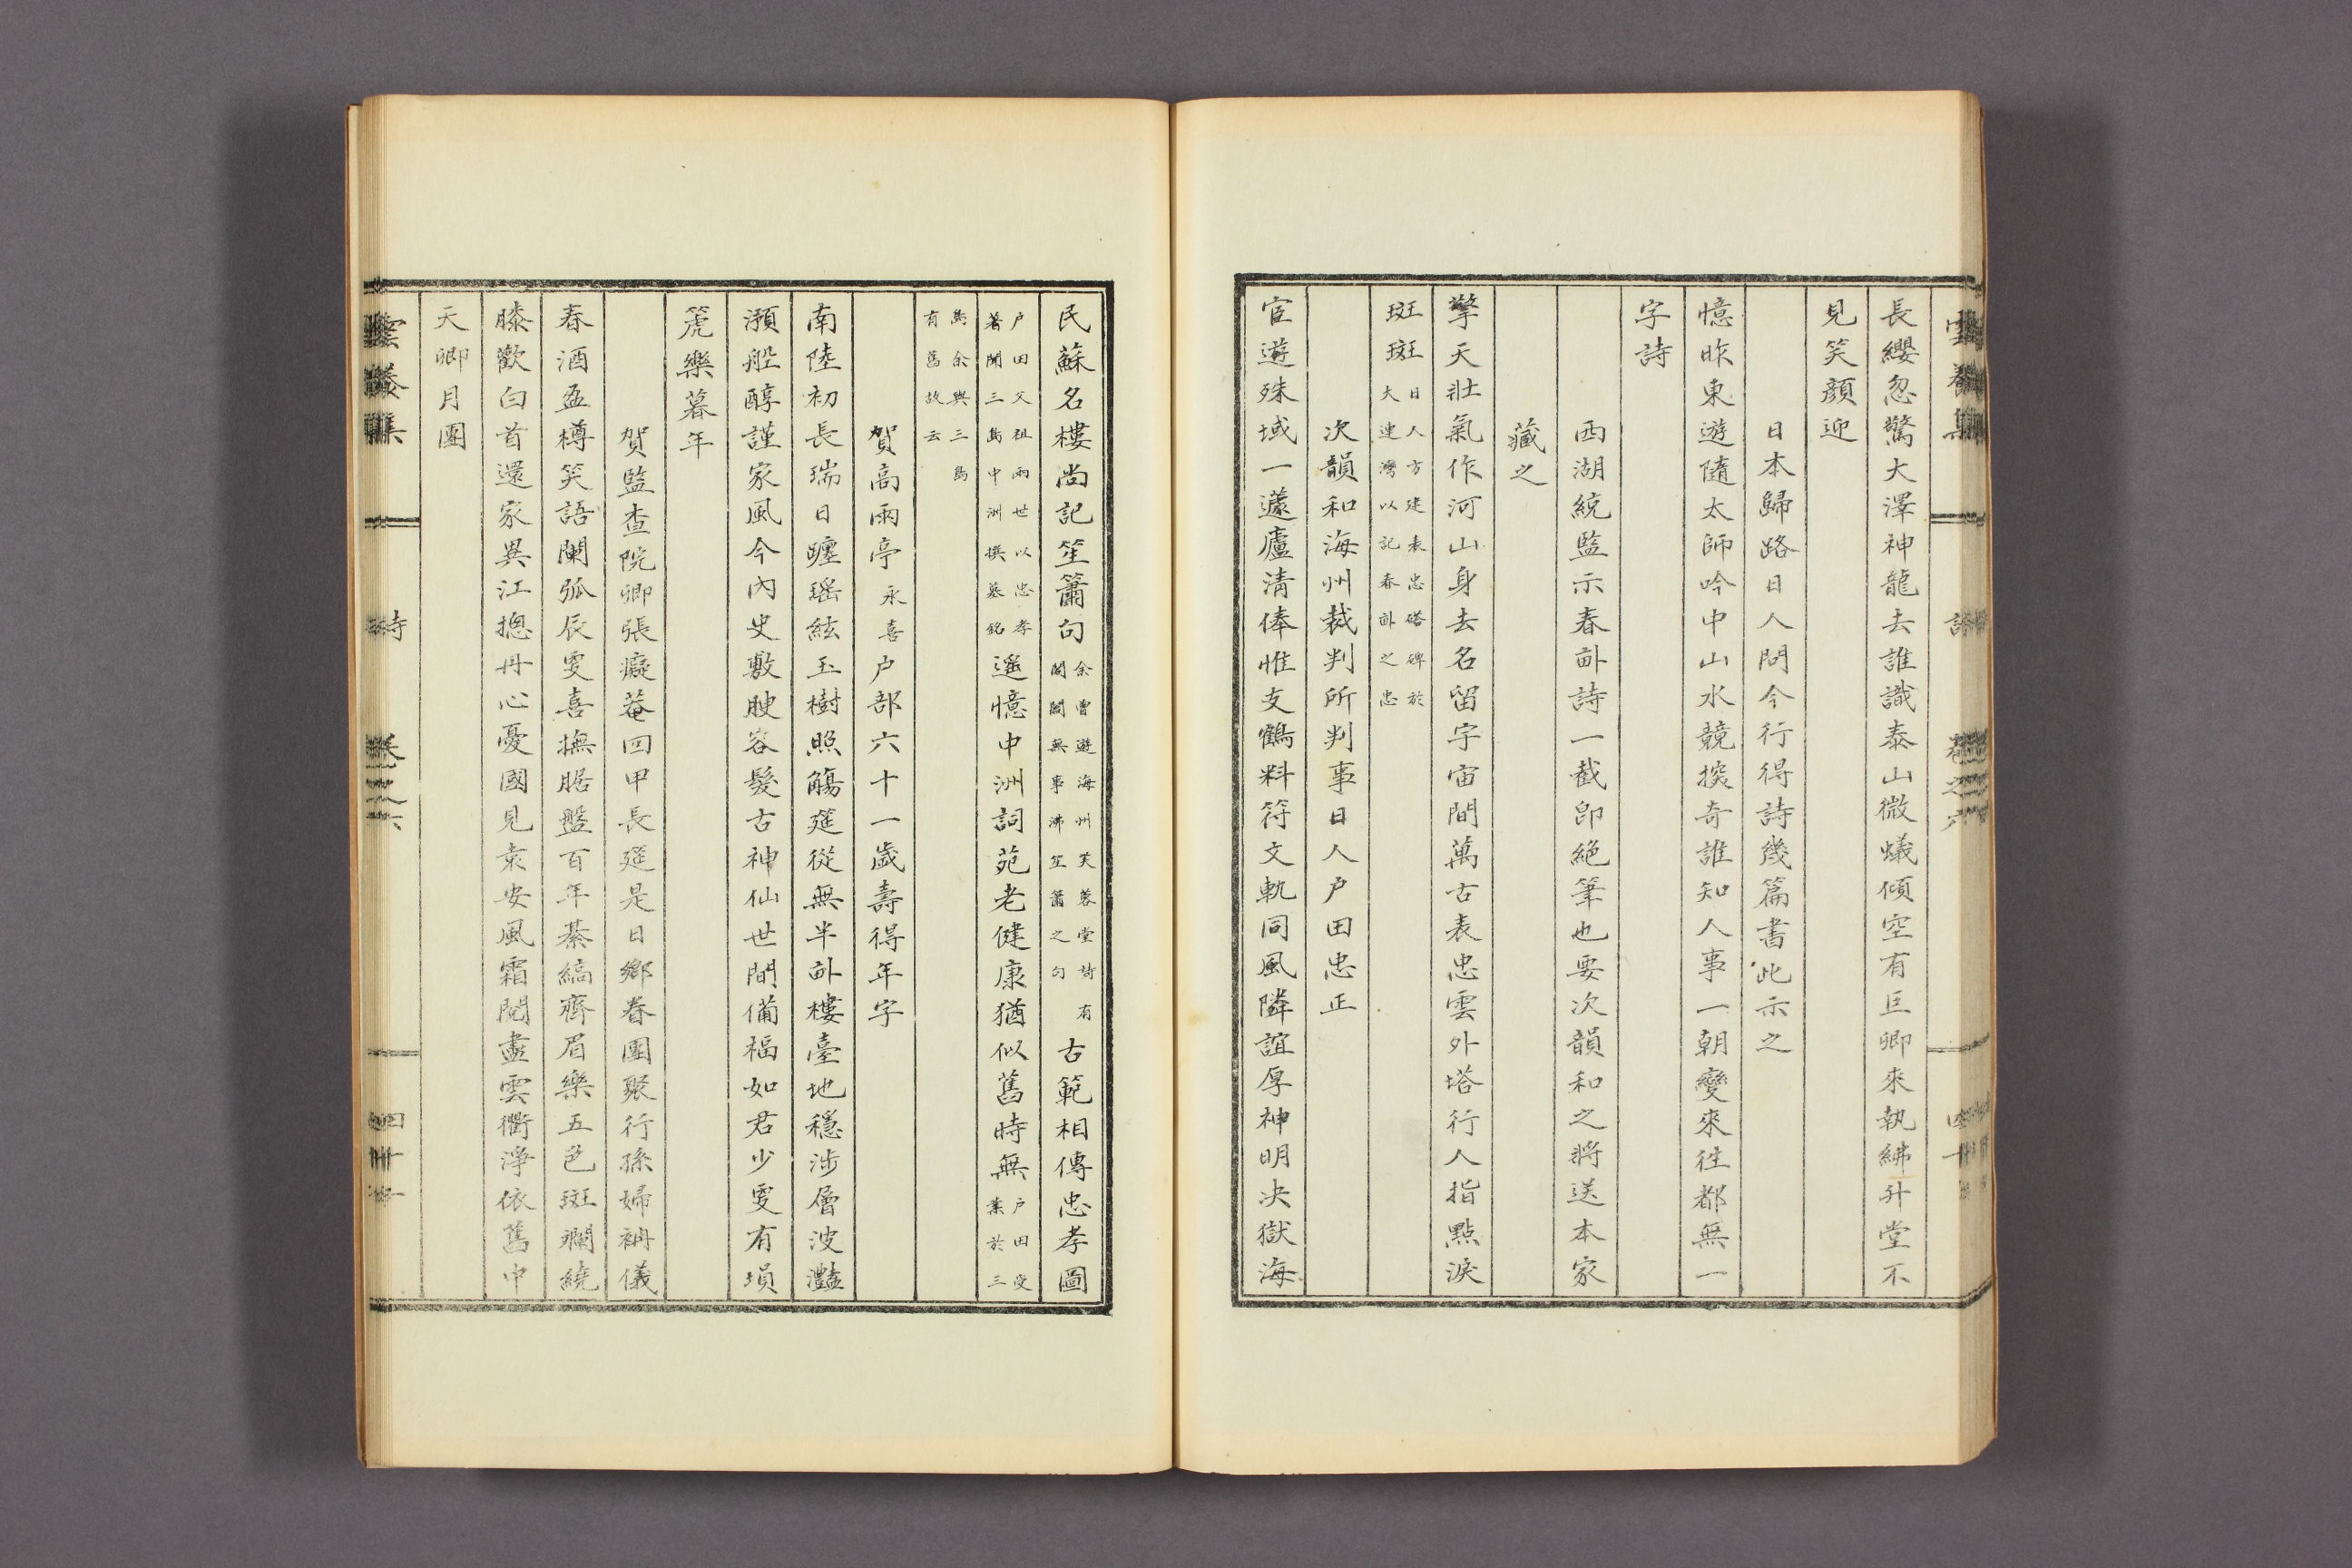 長纓忽驚大澤神龍去誰識泰山微蟻傾空有巨卿來執紼升堂不
見笑顔迎
日本歸路日人問今行得詩幾篇書此示之
憶昨東遊隨太師吟中山水競揬奇誰知人事一朝變來徃都無一
字詩
西湖統監示春畝詩一截卽絶筆也要次韻和之將送本家
藏之
擎天壯氣作河山身去名留宇宙間萬古表忠雲外塔行人指點淚
斑斑
日人方建表忠塔碑於
大連灣以記春畝之忠
次韻和海州裁判所判事日人户田忠正
官遊殊域一蘧廬淸俸惟支鶴料符文軌同風隣誼厚神明决獄海
民蘇名樓尚記笙簫句
余曾遊海州芙蓉堂詩有
閭閻無事沸笙簫之句
古範相傳忠孝圖
户田父祖兩世以忠孝
著聞三島中洲撰墓銘
遥憶中洲詞苑老健康猶似舊時無
户田受
業於三
島余與三島
有舊故云
賀高雨亭永喜户部六十一歲壽得年字
南陸初長瑞日躔瑶絃玉樹照觴筵從無半畝樓臺地穩涉層波灩
澦船醇謹家風今内史敷腴容髮古神仙世間備福如君少更有塤
箎樂暮年
賀監查院卿張癡菴回甲長筵是日鄉眷團聚行孫婦衲儀
春酒盈樽笑語闌弧辰更喜撫腒盤百年綦縞齊眉樂五色斑斕繞
膝歡白首還家異江摠丹心憂國見袁安風霜閱盡雲衢淨依舊中
天卿月團
雲養集
詩
卷之六